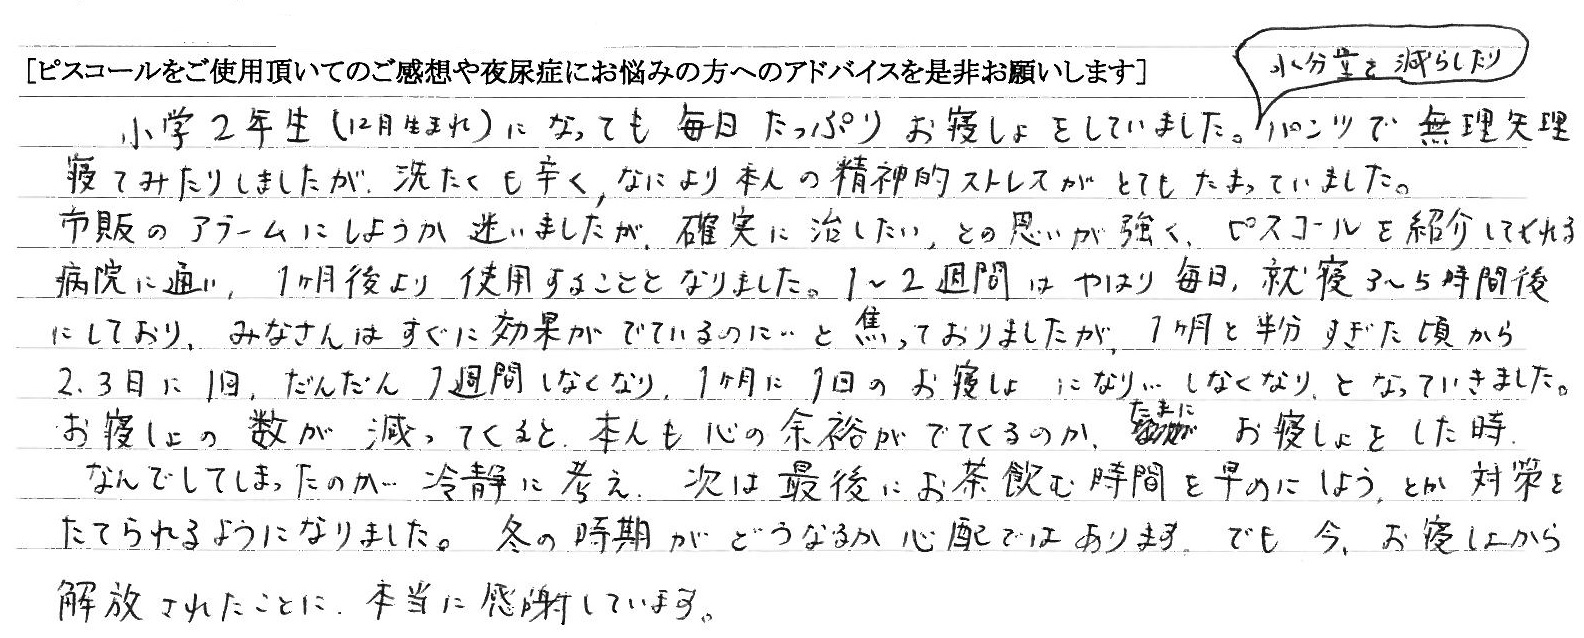 水分量を減らしたり
[ピスコールをご使用頂いてのご感想や夜尿症にお悩みの方へのアドバイスを是非お願いします]
小学2年生(12月生まれ)になっても毎日たっぷりお寝しょをしていました。パンツで無理矢理
寝てみたりしましたが、洗たくも辛く、なにより本人の精神的ストレスがとてもたまっていました。
市販のアラームにしようか迷いましたが、確実に治したい、との思いが強く、ピスコールを紹介してくれる
病院に通い、1ヶ月後より使用することとなりました。1〜2週間はやはり毎日、就寝3〜5時間後
にしており、みなさんはすぐに効果がでているのに…と焦っておりましたが、1ヶ月と半分すぎた頃から
2.3日に1回、だんだん1週間しなくなり、1ヶ月に1回のお寝しょになり…しなくなり、となっていきました。
お寝しょの数が減ってくると、本人も心の余裕がでてくるのか、たまにお寝しょをした時、
なんでしてしまったのか…冷静に考え、次は最後にお茶飲む時間を早めにしよう、とか対策を
たてられるようになりました。冬の時期がどうなるか心配ではあります。でも今、お寝しょから
解放されたことに、本当に感謝しています。